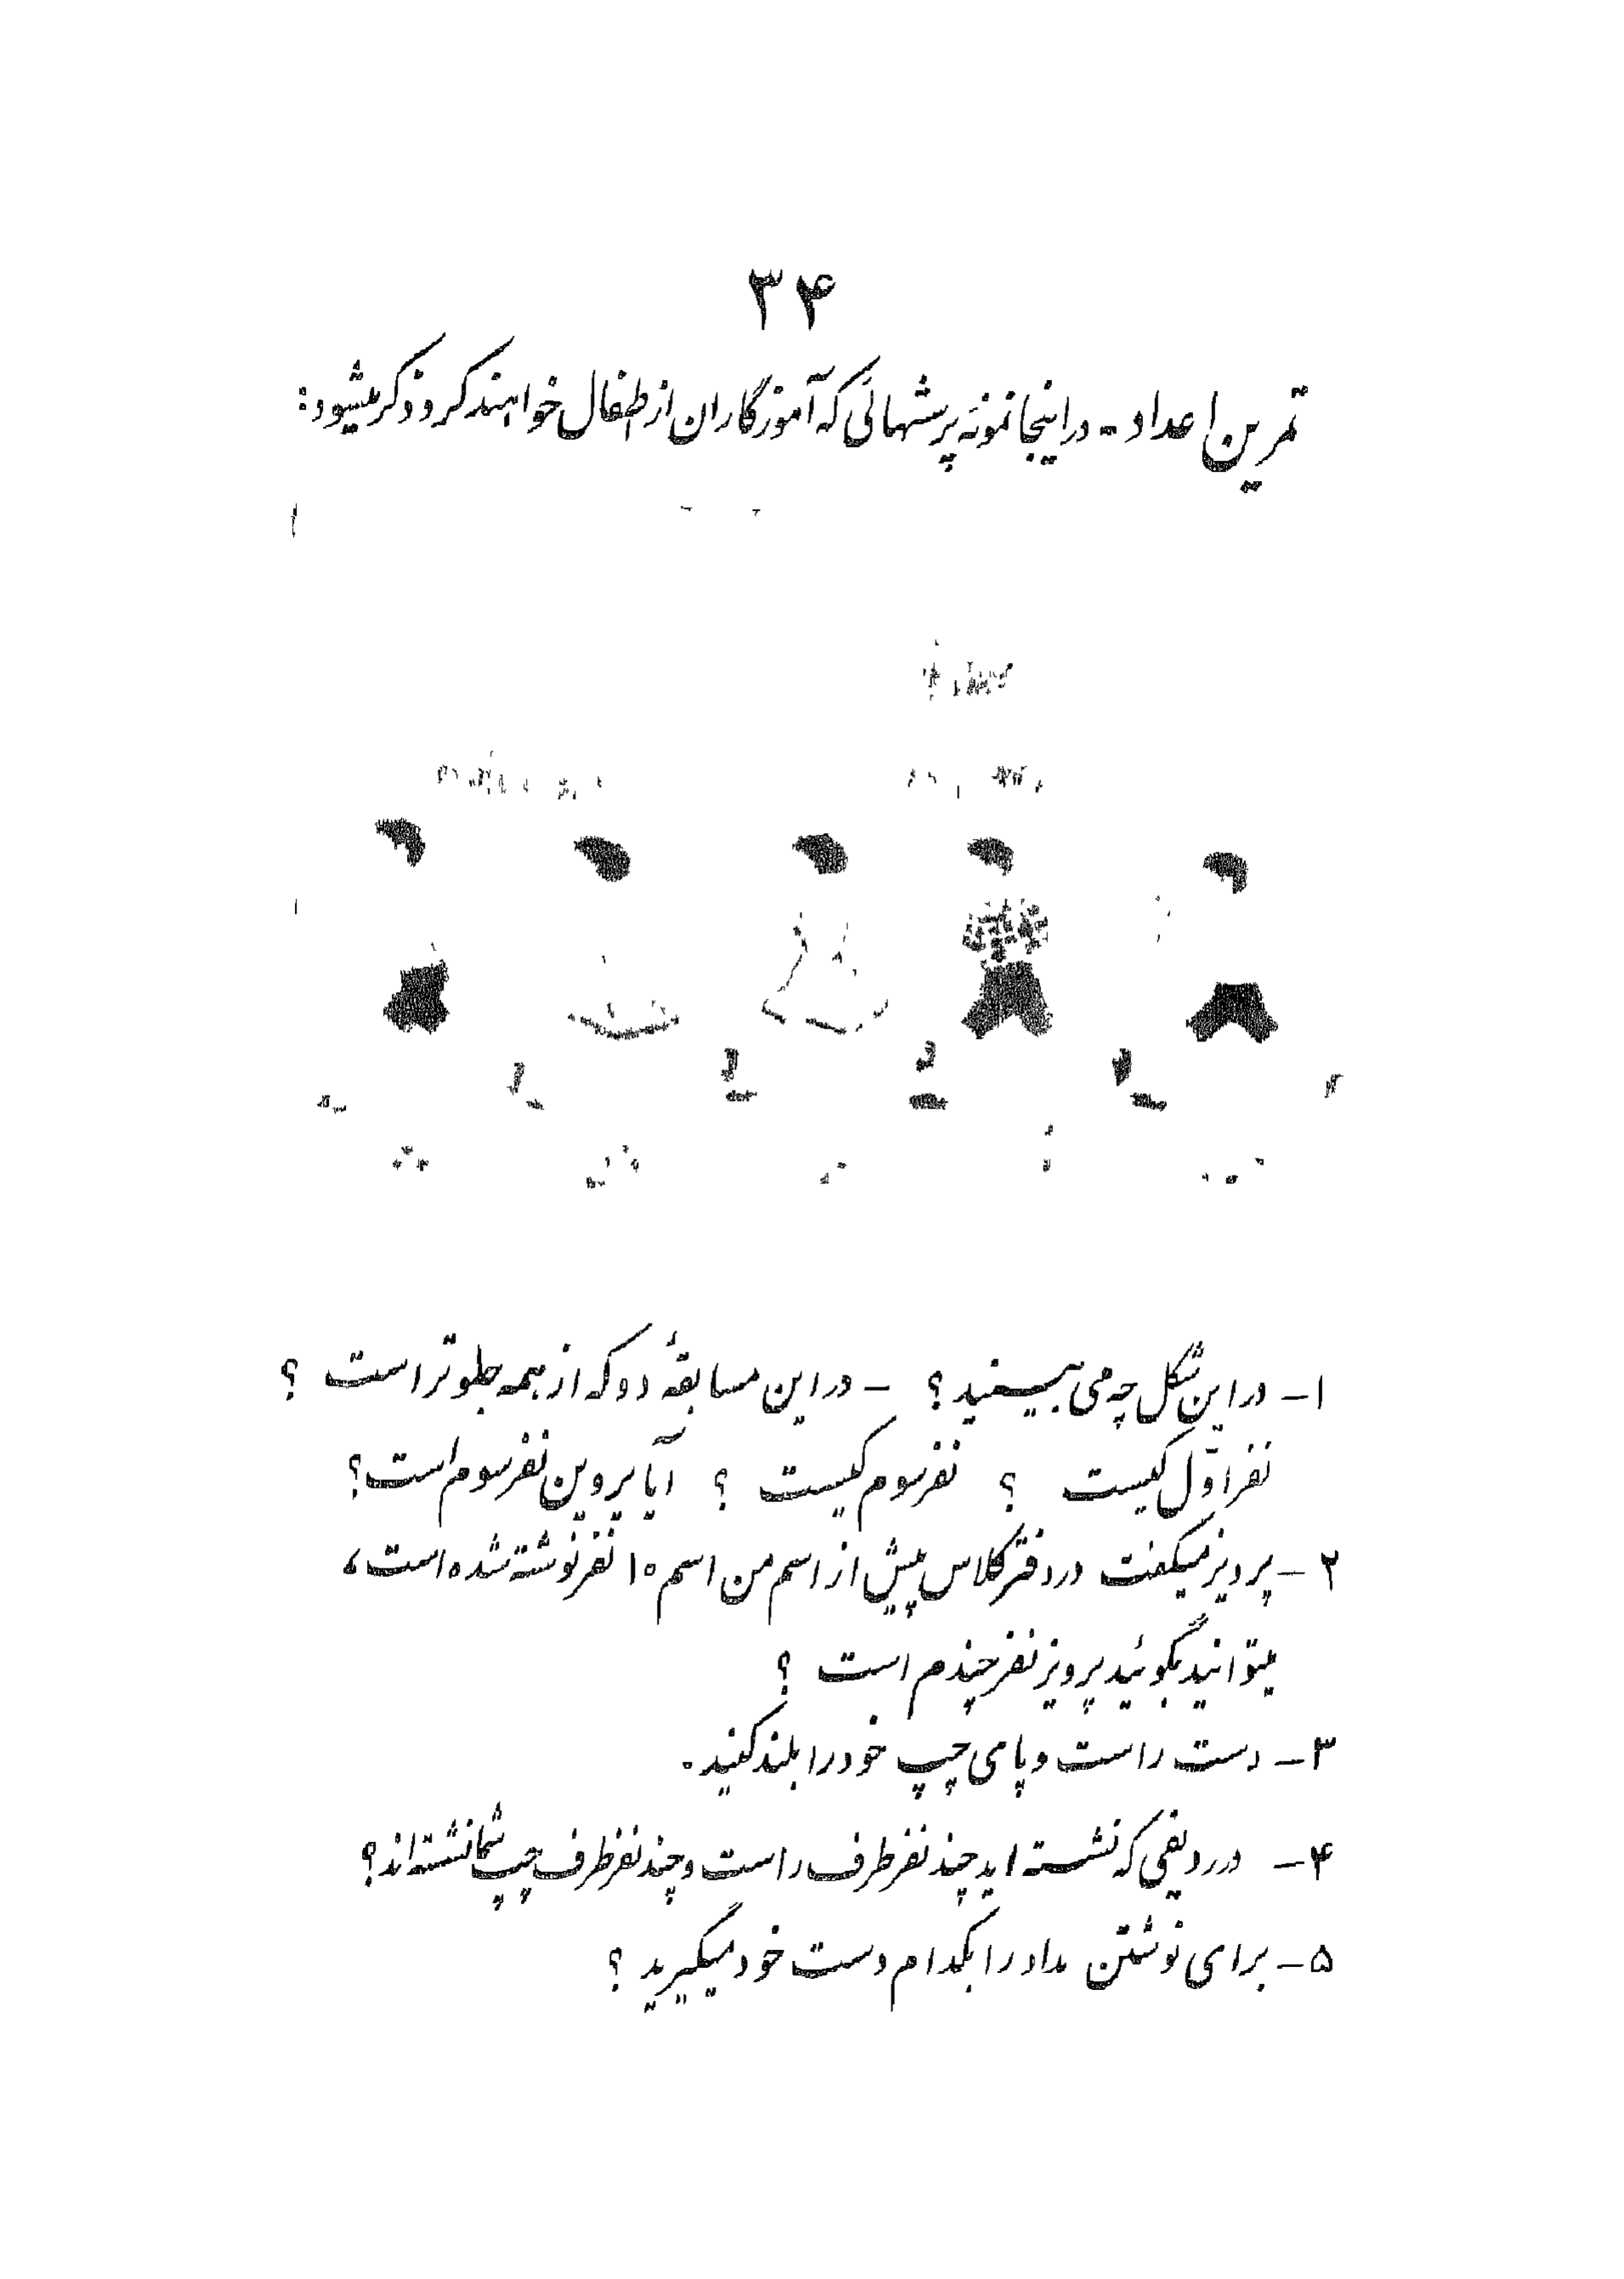 ۳۴
تمرین اعداد - در اینجا نمونهٔ پرسشهائی که آموزگاران از طفال خواهند کرد ذکر میشود:
۱ - در این شکل چه می بینید؟ - در این مسابقهٔ دو که از همه جلوتر است ؟
نفر اوّل کیست ؟ نفر سوم کیست ؟ آیا پروین نفر سوم است؟
۲ - پرویز میگفت در دفتر کلاس پیش از اسم من اسم ۱۰ نفر نوشته شده است،
میتوانید بگوئید پرویز نفر چندم است ؟
۳ - دست راست و پای چپ خود را بلند کنید.
۴ - در ردیفی که نشسته اید چند نفر طرف راست و چند نفر طرف چپ شما نشسته اند؟
۵ - برای نوشتن مداد را بکدام دست خود میگیرید ؟